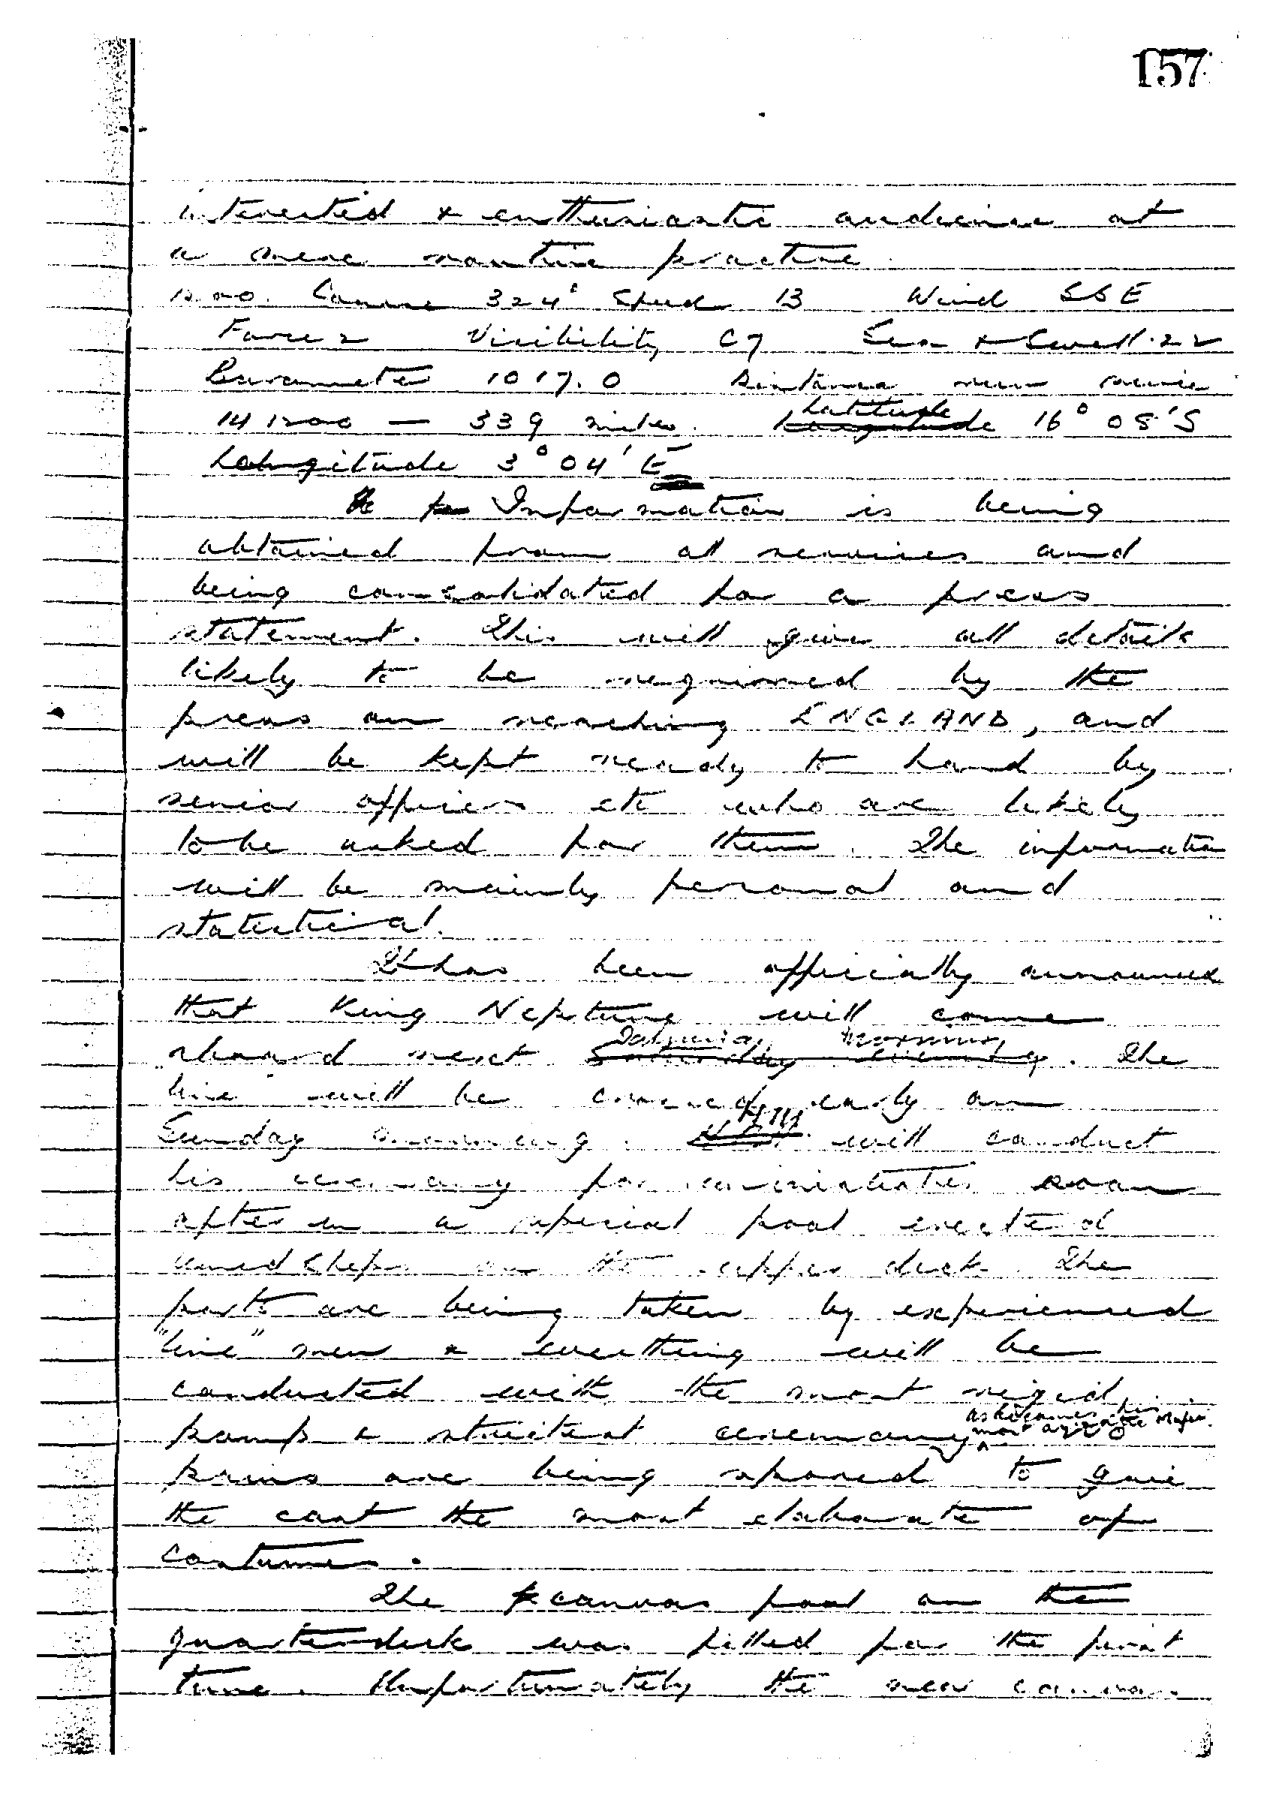 157
interested & enthusiastic audience at
a mere routine practice.
1200. Course 324° Speed 13 Wind SSE
Force 2 Visibility C7 Sea & Swell. 22
Barometer 1017.0 Distance run since
14 1200 — 339 miles. Longitude Latitude 16° 08'S
Longitude 3° 04' E
Information is being
obtained from all services and
being consolidated for a press
statement. This will give all details
likely to be required by the
press on reaching ENGLAND, and
will be kept ready to hand by
senior officers etc who are likely
to be asked for them. The information
will be mainly personal and
statistical.
It has been officially announced
that King Neptune will come
aboard next Saturday evening Saturday morning. The
line will be crossed early on
Sunday morning. H.M. will conduct
his ceremony for initiates soon
after in a special pool erected
amidships on the upper deck. The
parts are being taken by experienced
"line" men & everything will be
conducted with the most rigid
pomp & strictest ceremony as becomes his most aquatic Majesty.
pains are being spared to give
the cast the most elaborate of
costumes.
The canvas pool on the
quarterdeck was filled for the first
time. Unfortunately the new canvas